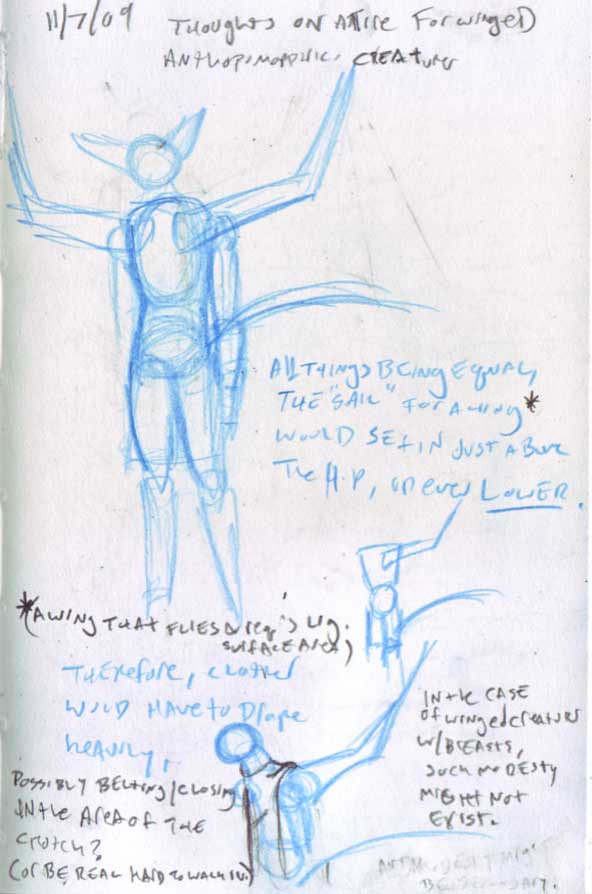 11/7/09 THOUGHTS ON ATTIRE FOR WINGED
ANTHOPOMORPHIC CREATURES
ALL THINGS BEING EQUAL,
THE "SAIL" FOR A WING*
WOULD SET IN JUST ABOVE
THE HIP, OR EVEN LOWER.
*(A WING THAT FLIES & req's Lg.
SURFACE AREA)
THEREFORE, CLOTHES
WOULD HAVE TO DRAPE
HEAVILY,
POSSIBLY BELTING/CLOSING
IN THE AREA OF THE
CROTCH?
(OR BE REAL HARD TO WALK IN.)
IN THE CASE
OF WINGED CREATURES
W/BREASTS,
SUCH MODESTY
MIGHT NOT
EXIST.